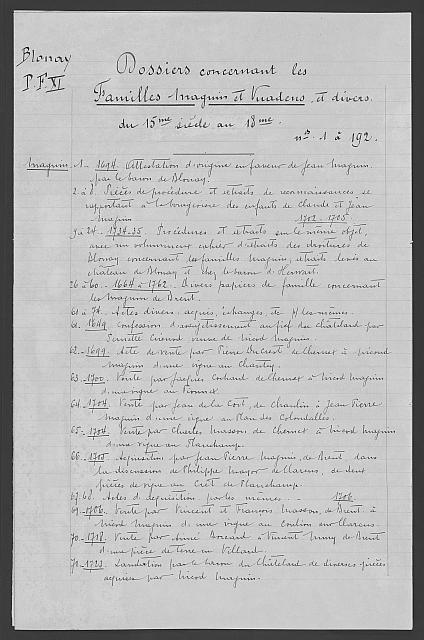 Blonay
P.F. XI
Dossiers concernant les
Familles Maguin et Vuadens, et divers.
du 15me siècle au 18me.
nos 1 à 192.
Maguin. 1 - 1694. Attestation d'origine en faveur de Jean Maguin.
par le baron de Blonay.
2 à 8 Pièces de procédure et extraits de reconnaissances, se
rapportant à la bourgeoisie des enfants de Claude et Jean
Maguin 1702-1705.
9 à 24 - 1734-35. Procédures et extraits sur le même objet,
avec un volumineux cahier d'extraits des droitures de
Blonay concernant les familles Maguin; extraits levés au
château de Blonay et chez le baron d'Hervart.
26 à 60. - 1664 à 1762. Divers papiers de famille concernant
les Maguin de Brent.
61 à 74. Actes divers: acquis, échanges, etc. des mêmes.
61. 1649. Confession d'assujettissement au fief du Châtelard par
Pernette veuve de Nicod Maguin.
62. - 1699. Acte de vente par Pierre DuCrest de Chernex à Nicod
Maguin d'une vigne au
63. 1700. Vente par Jaques Cochard de Chernex à Nicod Maguin
d'une vigne au
64. 1704. Vente par Jean de la Cort, de Chaulin à Jean Pierre
Maguin d'une vigne au Plan des Colondalles.
65. - 1704. Vente par Charles Masson, de Chernex à Nicod Maguin
d'une vigne au Planchamp.
66. - 1705. Acquisition par Jean Pierre Maguin, de Brent dans
la discussion de Philippe Mayor de Clarens, de deux
pièces de vigne au Crêt de Planchamp.
67.68. Actes d'acquisition par les mêmes. - 1706.
69. - 1706. Vente par Vincent et François Masson, de Brent à
Nicod Maguin d'une vigne au sur Clarens.
70. - 1718. Vente par Aimé à Vincent de Brent
d'une pièce de terre en Villard.
71. - 1723. Laudation par le baron du Châtelard de diverses pièces
acquises par Nicod Maguin.